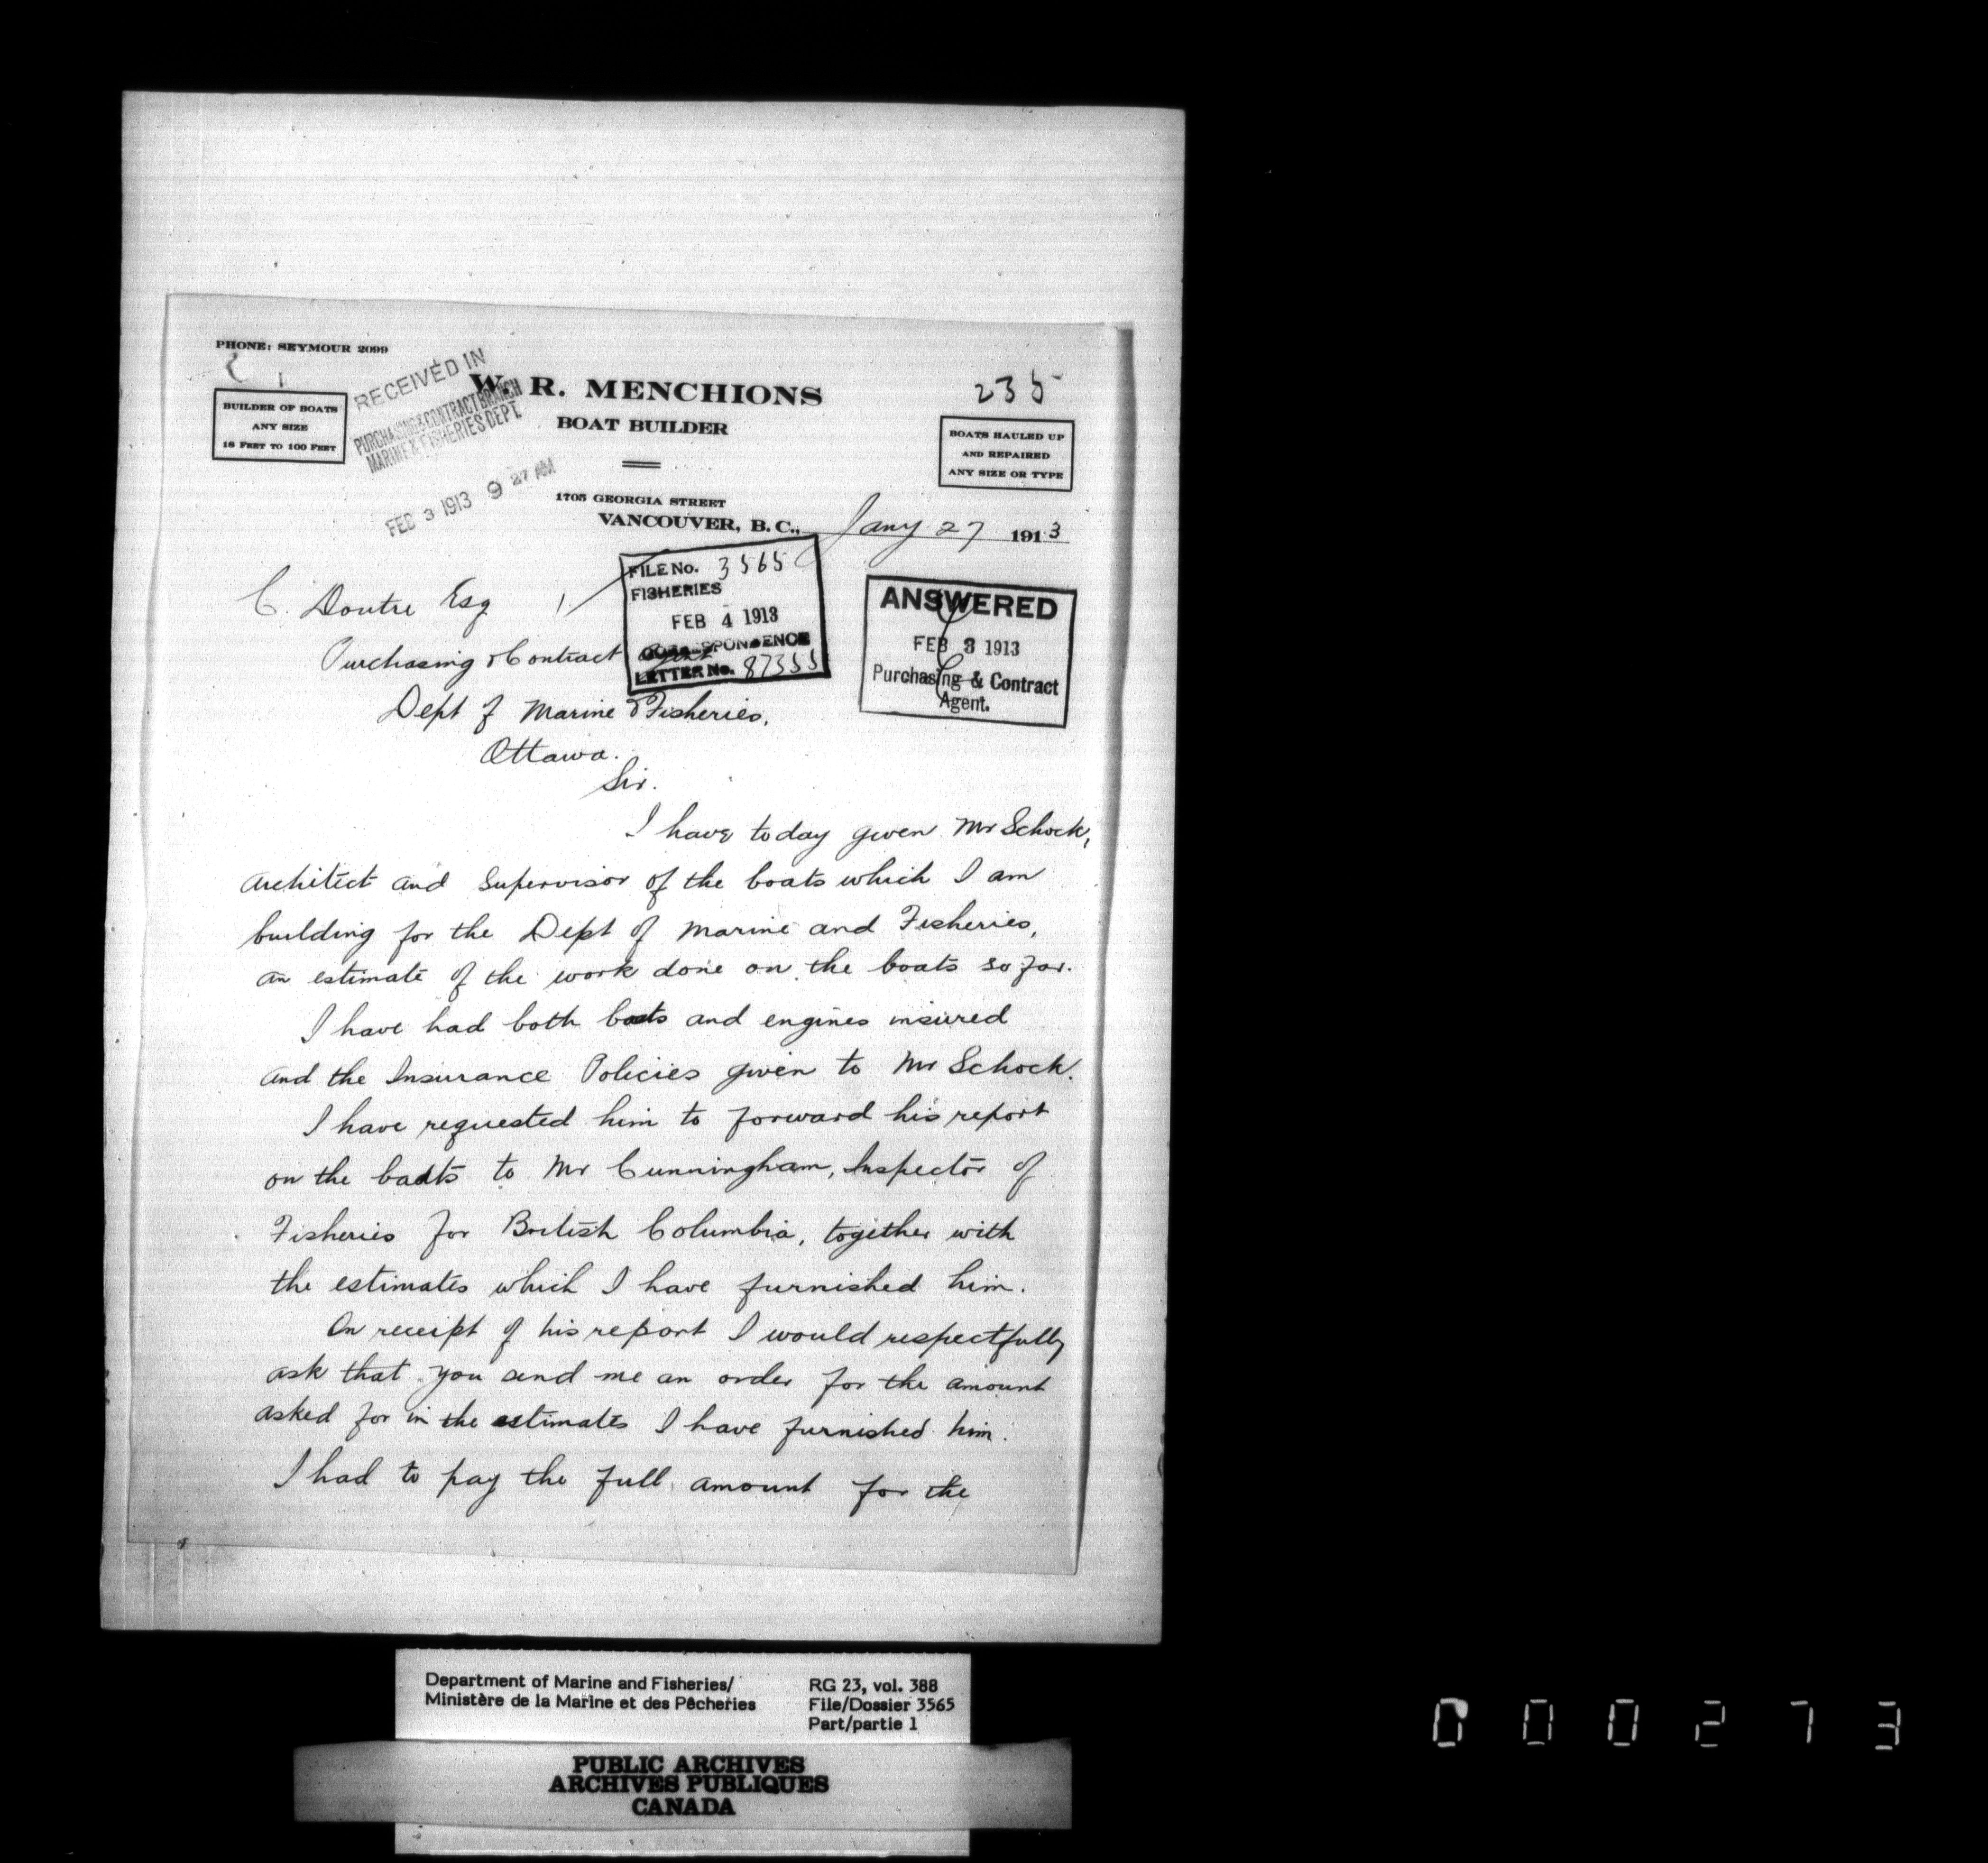 PHONE: SEYMOUR 2099
RECEIVED IN
PURCHASING & CONTRACT BRANCH
MARINE & FISHERIES DEPT.
FEB 3 1913 9 27 AM
W. R. MENCHIONS
BOAT BUILDER
235
BUILDER OF BOATS
ANY SIZE
18 FEET TO 100 FEET
BOATS HAULED UP
AND REPAIRED
ANY SIZE OR TYPE
1705 GEORGIA STREET
VANCOUVER, B. C., Jany 27 1913
FILE No. 3565
FISHERIES
FEB 4 1913
CORRESPONDENCE
LETTER No. 87355
ANSWERED
FEB 3 1913
Purchasing & Contract
Agent.
C. Doutre Esq
Purchasing & Contract
Dept of Marine & Fisheries,
Ottawa.
Sir.
I have today given Mr Schock,
architect and supervisor of the boats which I am
building for the Dept of Marine and Fisheries,
an estimate of the work done on the boats so far.
I have had both boats and engines insured
and the Insurance Policies given to Mr Schock.
I have requested him to forward his report
on the boats to Mr Cunningham, Inspector of
Fisheries for British Columbia, together with
the estimates which I have furnished him.
On receipt of his report I would respectfully
ask that you send me an order for the amount
asked for in the estimates I have furnished him.
I had to pay the full amount for the
Department of Marine and Fisheries/
Ministère de la Marine et des Pêcheries
RG 23, vol. 388
File/Dossier 3565
Part/partie 1
PUBLIC ARCHIVES
ARCHIVES PUBLIQUES
CANADA
000273